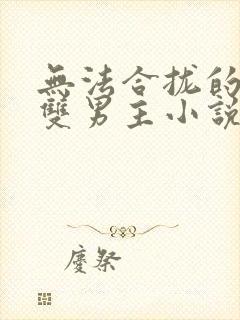 無法合拢的
雙男主小說
慶祭